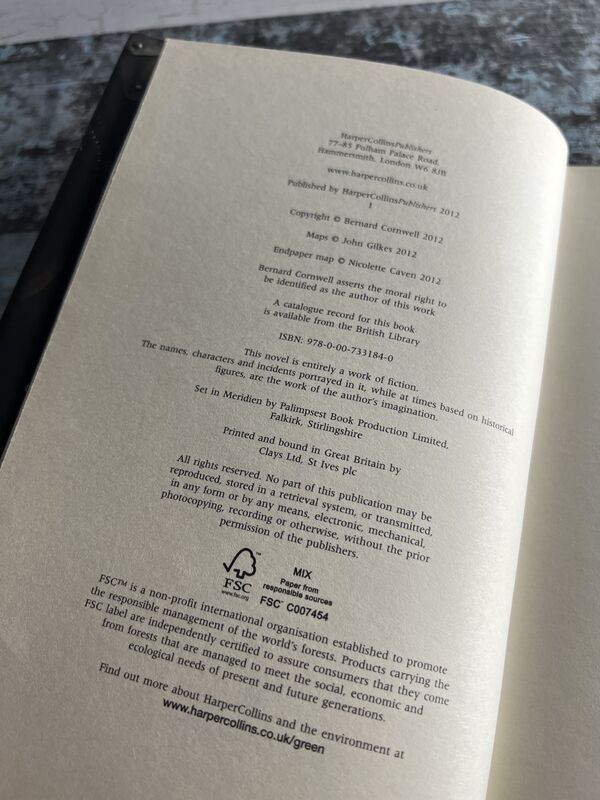 HarperCollinsPublishers
77–85 Fulham Palace Road,
Hammersmith, London W6 8JB
www.harpercollins.co.uk
Published by HarperCollinsPublishers 2012
1
Copyright © Bernard Cornwell 2012
Maps © John Gilkes 2012
Endpaper map © Nicolette Caven 2012
Bernard Cornwell asserts the moral right to
be identified as the author of this work
A catalogue record for this book
is available from the British Library
ISBN: 978-0-00-733184-0
This novel is entirely a work of fiction.
The names, characters and incidents portrayed in it, while at times based on historical
figures, are the work of the author's imagination.
Set in Meridien by Palimpsest Book Production Limited,
Falkirk, Stirlingshire
Printed and bound in Great Britain by
Clays Ltd, St Ives plc
All rights reserved. No part of this publication may be
reproduced, stored in a retrieval system, or transmitted,
in any form or by any means, electronic, mechanical,
photocopying, recording or otherwise, without the prior
permission of the publishers.
FSC
www.fsc.org
MIX
Paper from
responsible sources
FSC® C007454
FSC™ is a non-profit international organisation established to promote
the responsible management of the world's forests. Products carrying the
FSC label are independently certified to assure consumers that they come
from forests that are managed to meet the social, economic and
ecological needs of present and future generations.
Find out more about HarperCollins and the environment at
www.harpercollins.co.uk/green